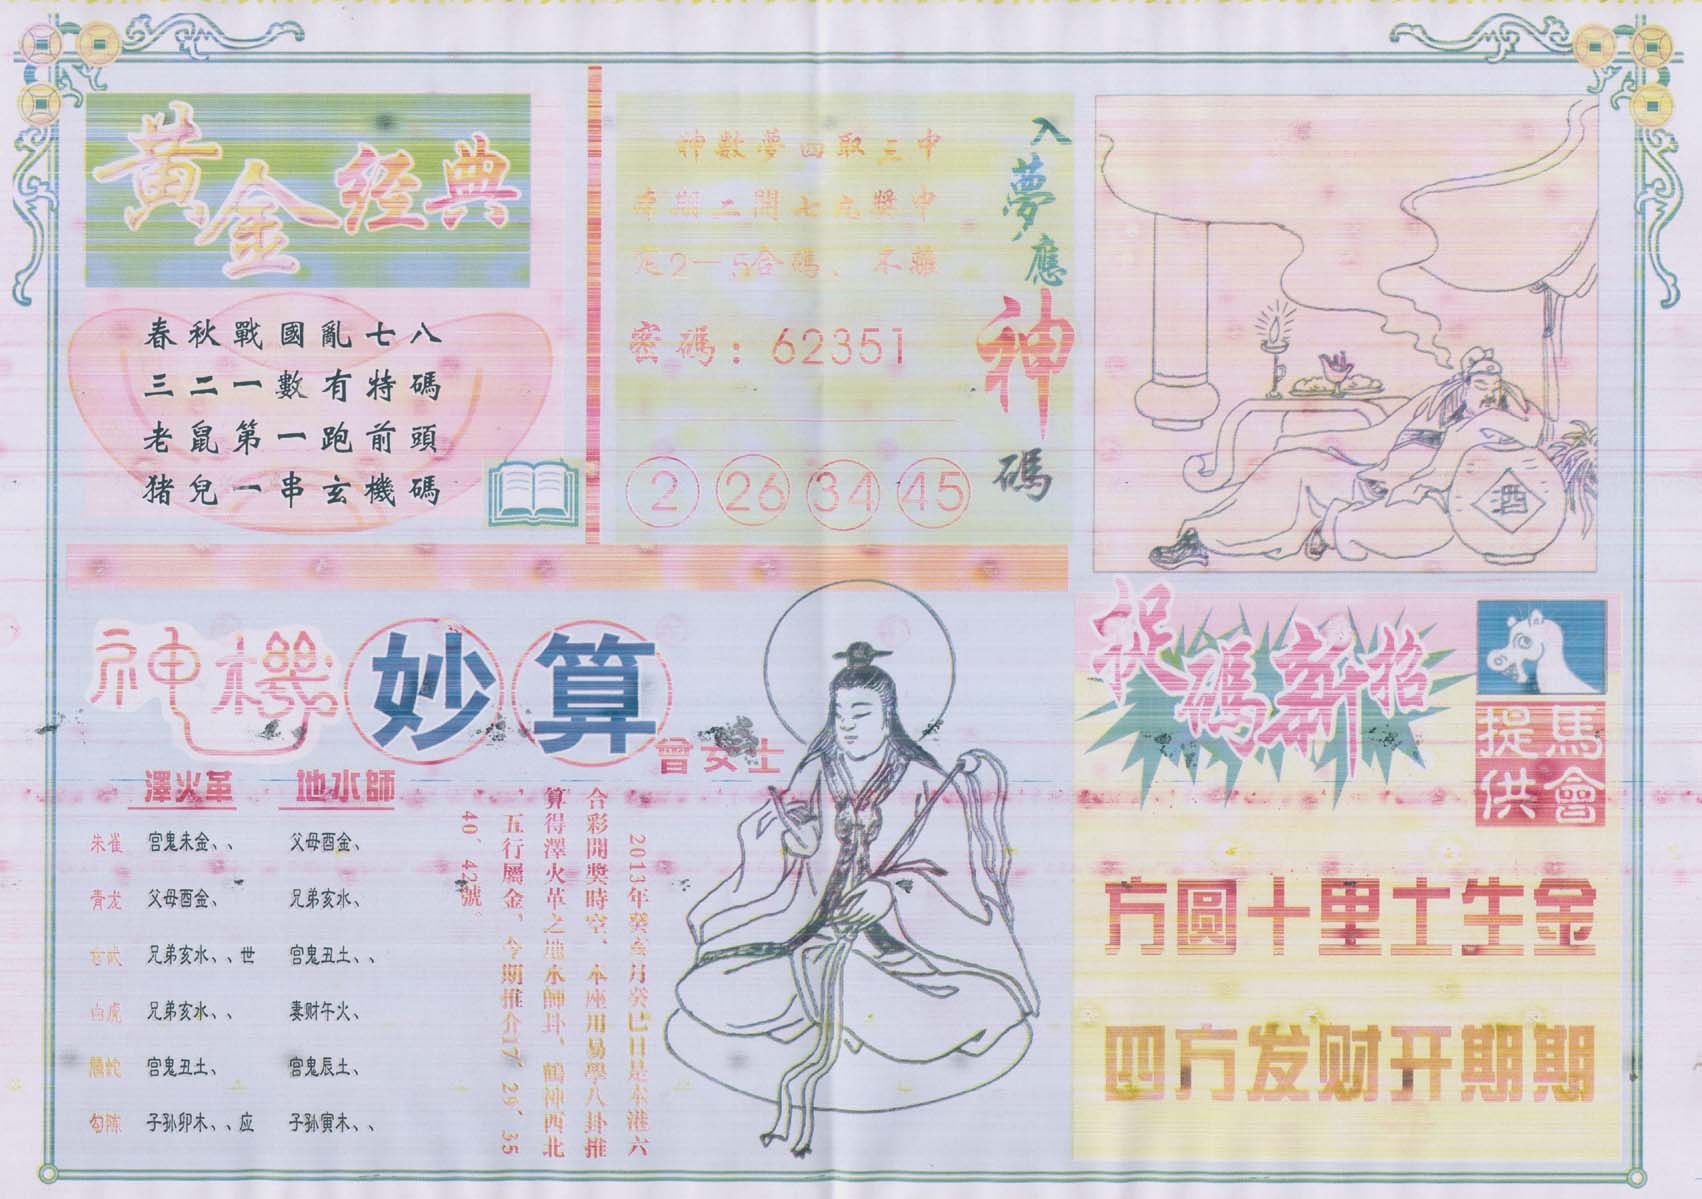 黃金经典
春秋戰國亂七八
三二一數有特碼
老鼠第一跑前頭
猪兒一串玄機碼
神數夢四取三中
期二開七九獎中
定2一5合碼、不離
密碼：62351
2 26 34 45
入夢應神碼
酒
神機妙算
曾女士
澤火革 地水師
朱雀 宫鬼未金、、 父母酉金、
青龙 父母酉金、 兄弟亥水、
玄武 兄弟亥水、、世 宫鬼丑土、、
白虎 兄弟亥水、、 妻财午火、
騰蛇 宫鬼丑土、 宫鬼辰土、
勾陈 子孙卯木、、应 子孙寅木、、
2013年癸亥月癸巳日是本港六
合彩開獎時空、本座用易學八卦推
算得澤火革之地水師卦、鶴神西北
、五行屬金、今期推介17、29、35
40、42號。
捉碼新招
馬會提供
方圓十里土生金
四方发财开期期